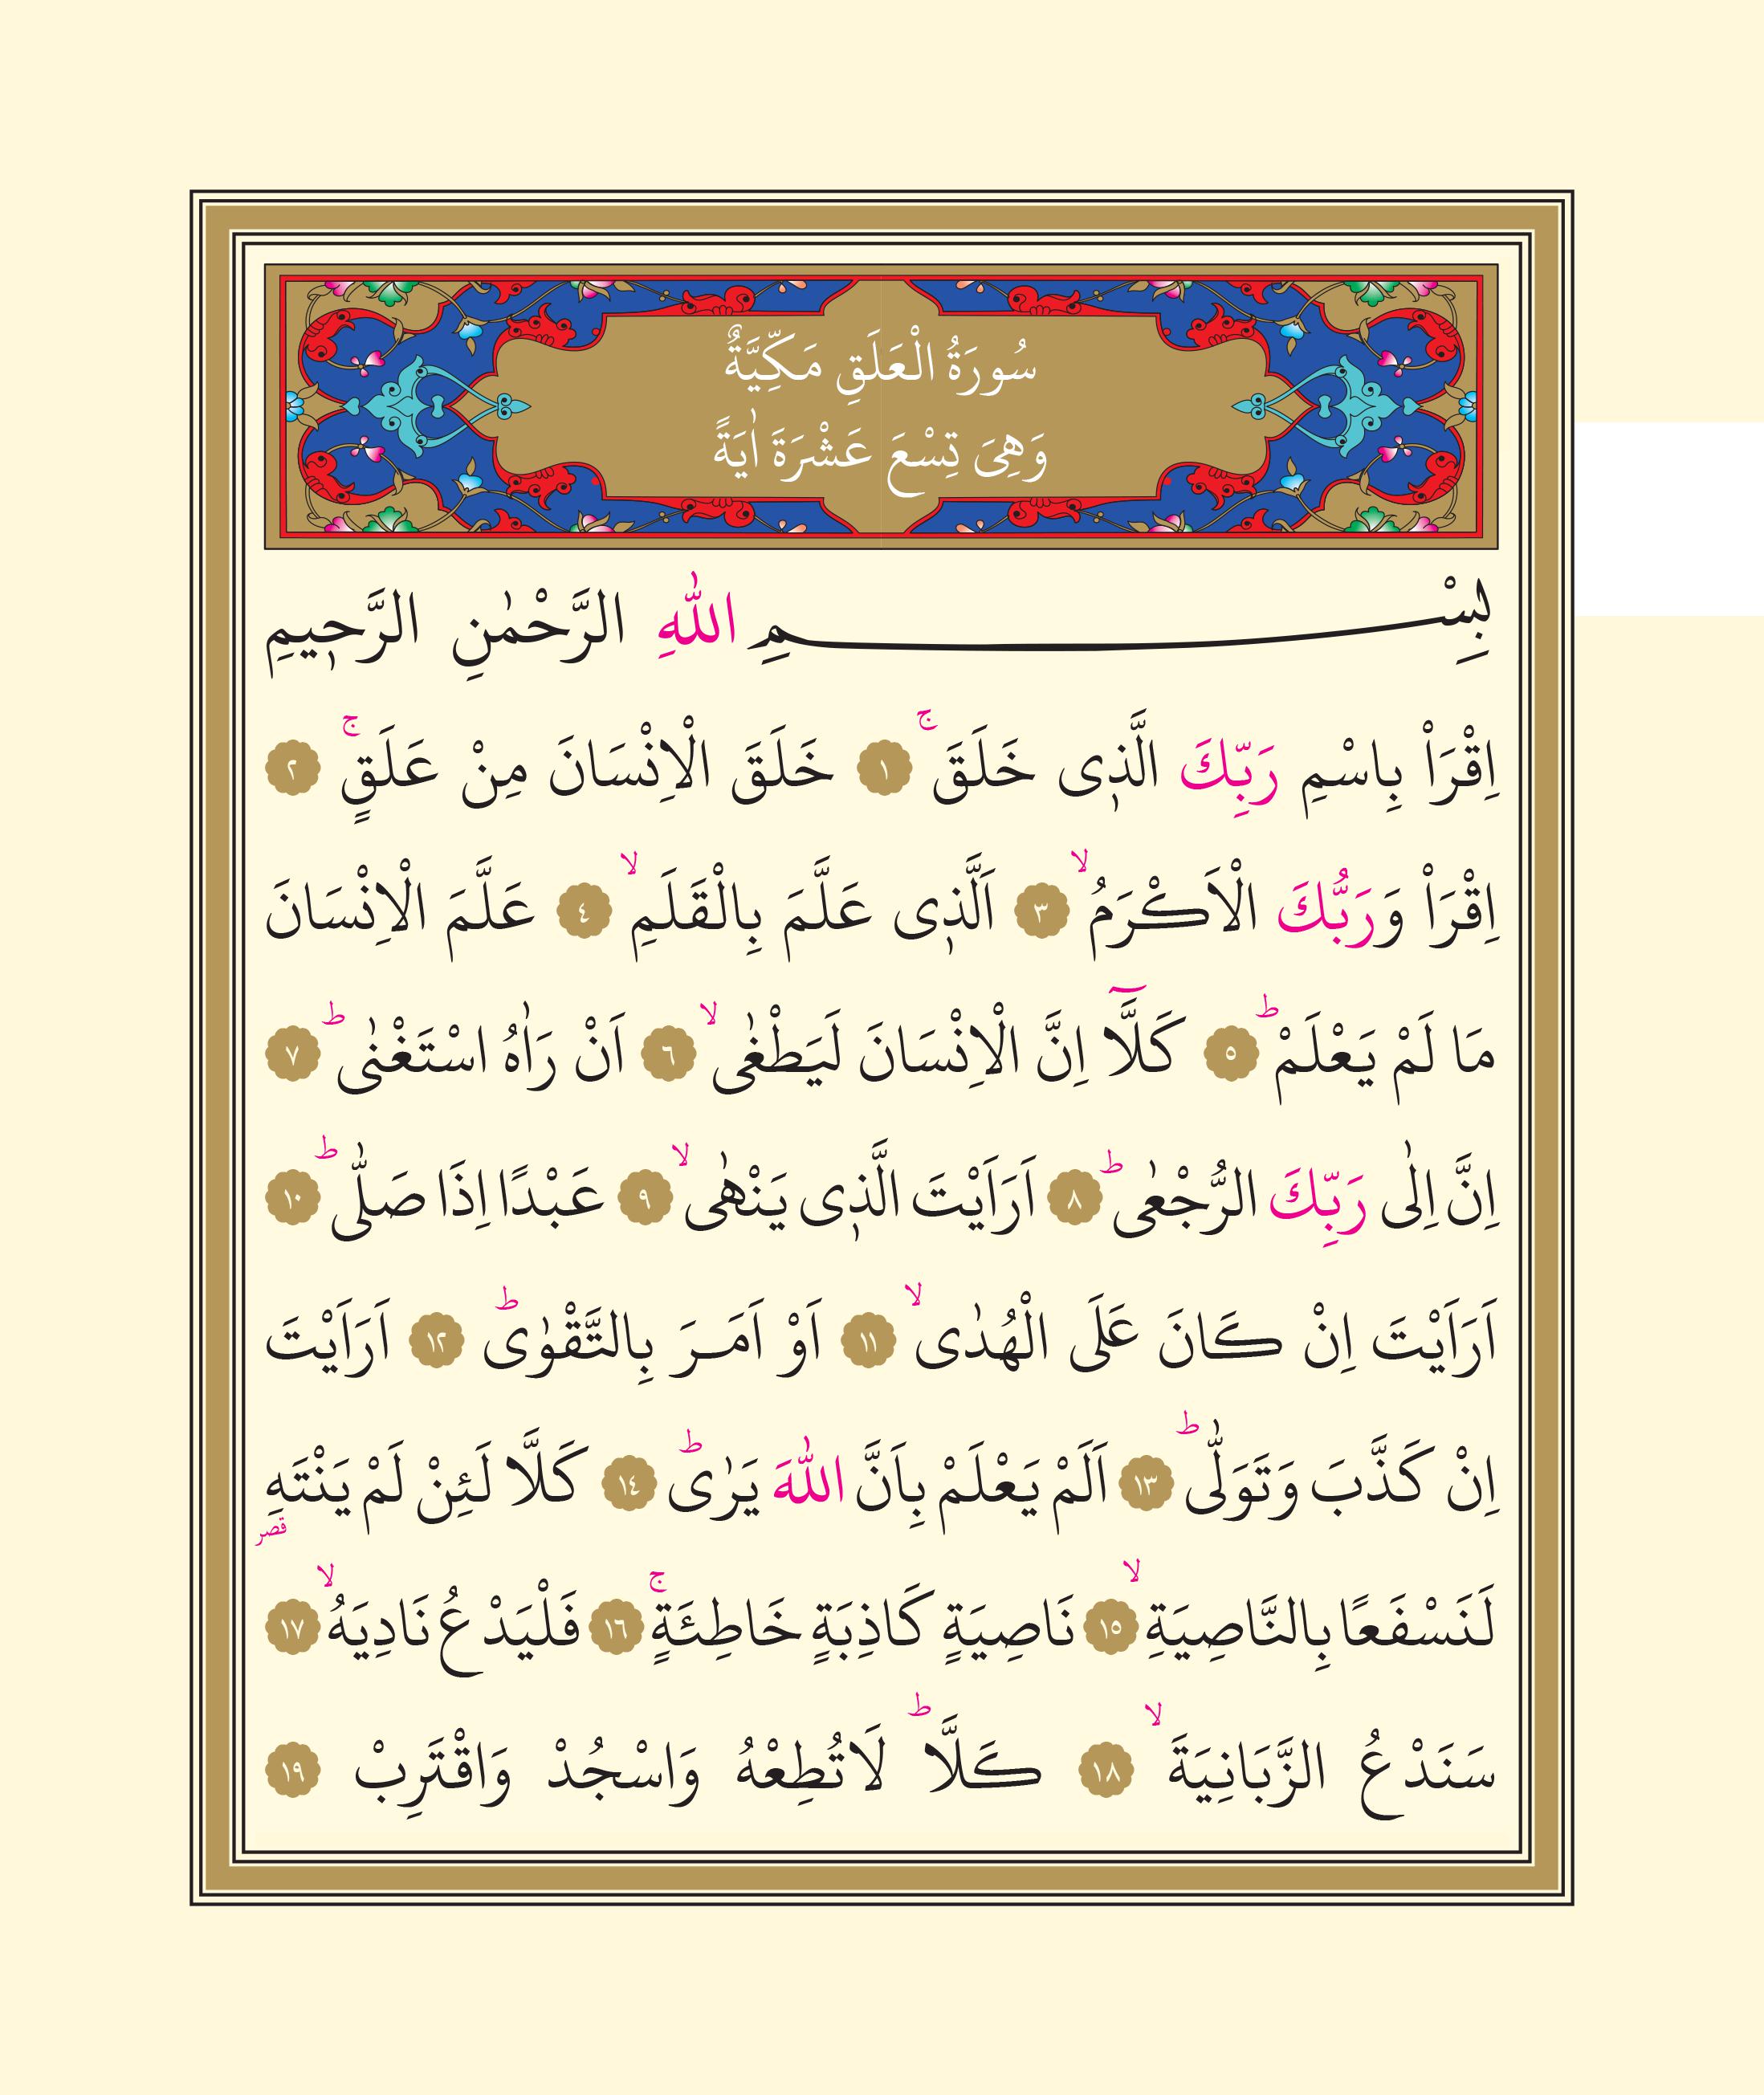 سُورَةُ الْعَلَقِ مَكِّيَّةٌ
وَهِىَ تِسْعَ عَشْرَةَ اٰيَةً
بِسْمِ اللّٰهِ الرَّحْمٰنِ الرَّح۪يمِ
اِقْرَاْ بِاسْمِ رَبِّكَ الَّذ۪ى خَلَقَۚ ﴿١﴾ خَلَقَ الْاِنْسَانَ مِنْ عَلَقٍۚ ﴿٢﴾
اِقْرَاْ وَرَبُّكَ الْاَكْرَمُۙ ﴿٣﴾ اَلَّذ۪ى عَلَّمَ بِالْقَلَمِۙ ﴿٤﴾ عَلَّمَ الْاِنْسَانَ
مَا لَمْ يَعْلَمْؕ ﴿٥﴾ كَلَّٓا اِنَّ الْاِنْسَانَ لَيَطْغٰىۙ ﴿٦﴾ اَنْ رَاٰهُ اسْتَغْنٰىؕ ﴿٧﴾
اِنَّ اِلٰى رَبِّكَ الرُّجْعٰىؕ ﴿٨﴾ اَرَاَيْتَ الَّذ۪ى يَنْهٰىۙ ﴿٩﴾ عَبْدًا اِذَا صَلّٰىؕ ﴿١٠﴾
اَرَاَيْتَ اِنْ كَانَ عَلَى الْهُدٰىۙ ﴿١١﴾ اَوْ اَمَرَ بِالتَّقْوٰىؕ ﴿١٢﴾ اَرَاَيْتَ
اِنْ كَذَّبَ وَتَوَلّٰىؕ ﴿١٣﴾ اَلَمْ يَعْلَمْ بِاَنَّ اللّٰهَ يَرٰىؕ ﴿١٤﴾ كَلَّا لَئِنْ لَمْ يَنْتَهِ
قصر
لَنَسْفَعًا بِالنَّاصِيَةِۙ ﴿١٥﴾ نَاصِيَةٍ كَاذِبَةٍ خَاطِئَةٍۚ ﴿١٦﴾ فَلْيَدْعُ نَادِيَهُۙ ﴿١٧﴾
سَنَدْعُ الزَّبَانِيَةَۙ ﴿١٨﴾ كَلَّاؕ لَا تُطِعْهُ وَاسْجُدْ وَاقْتَرِبْ ﴿١٩﴾